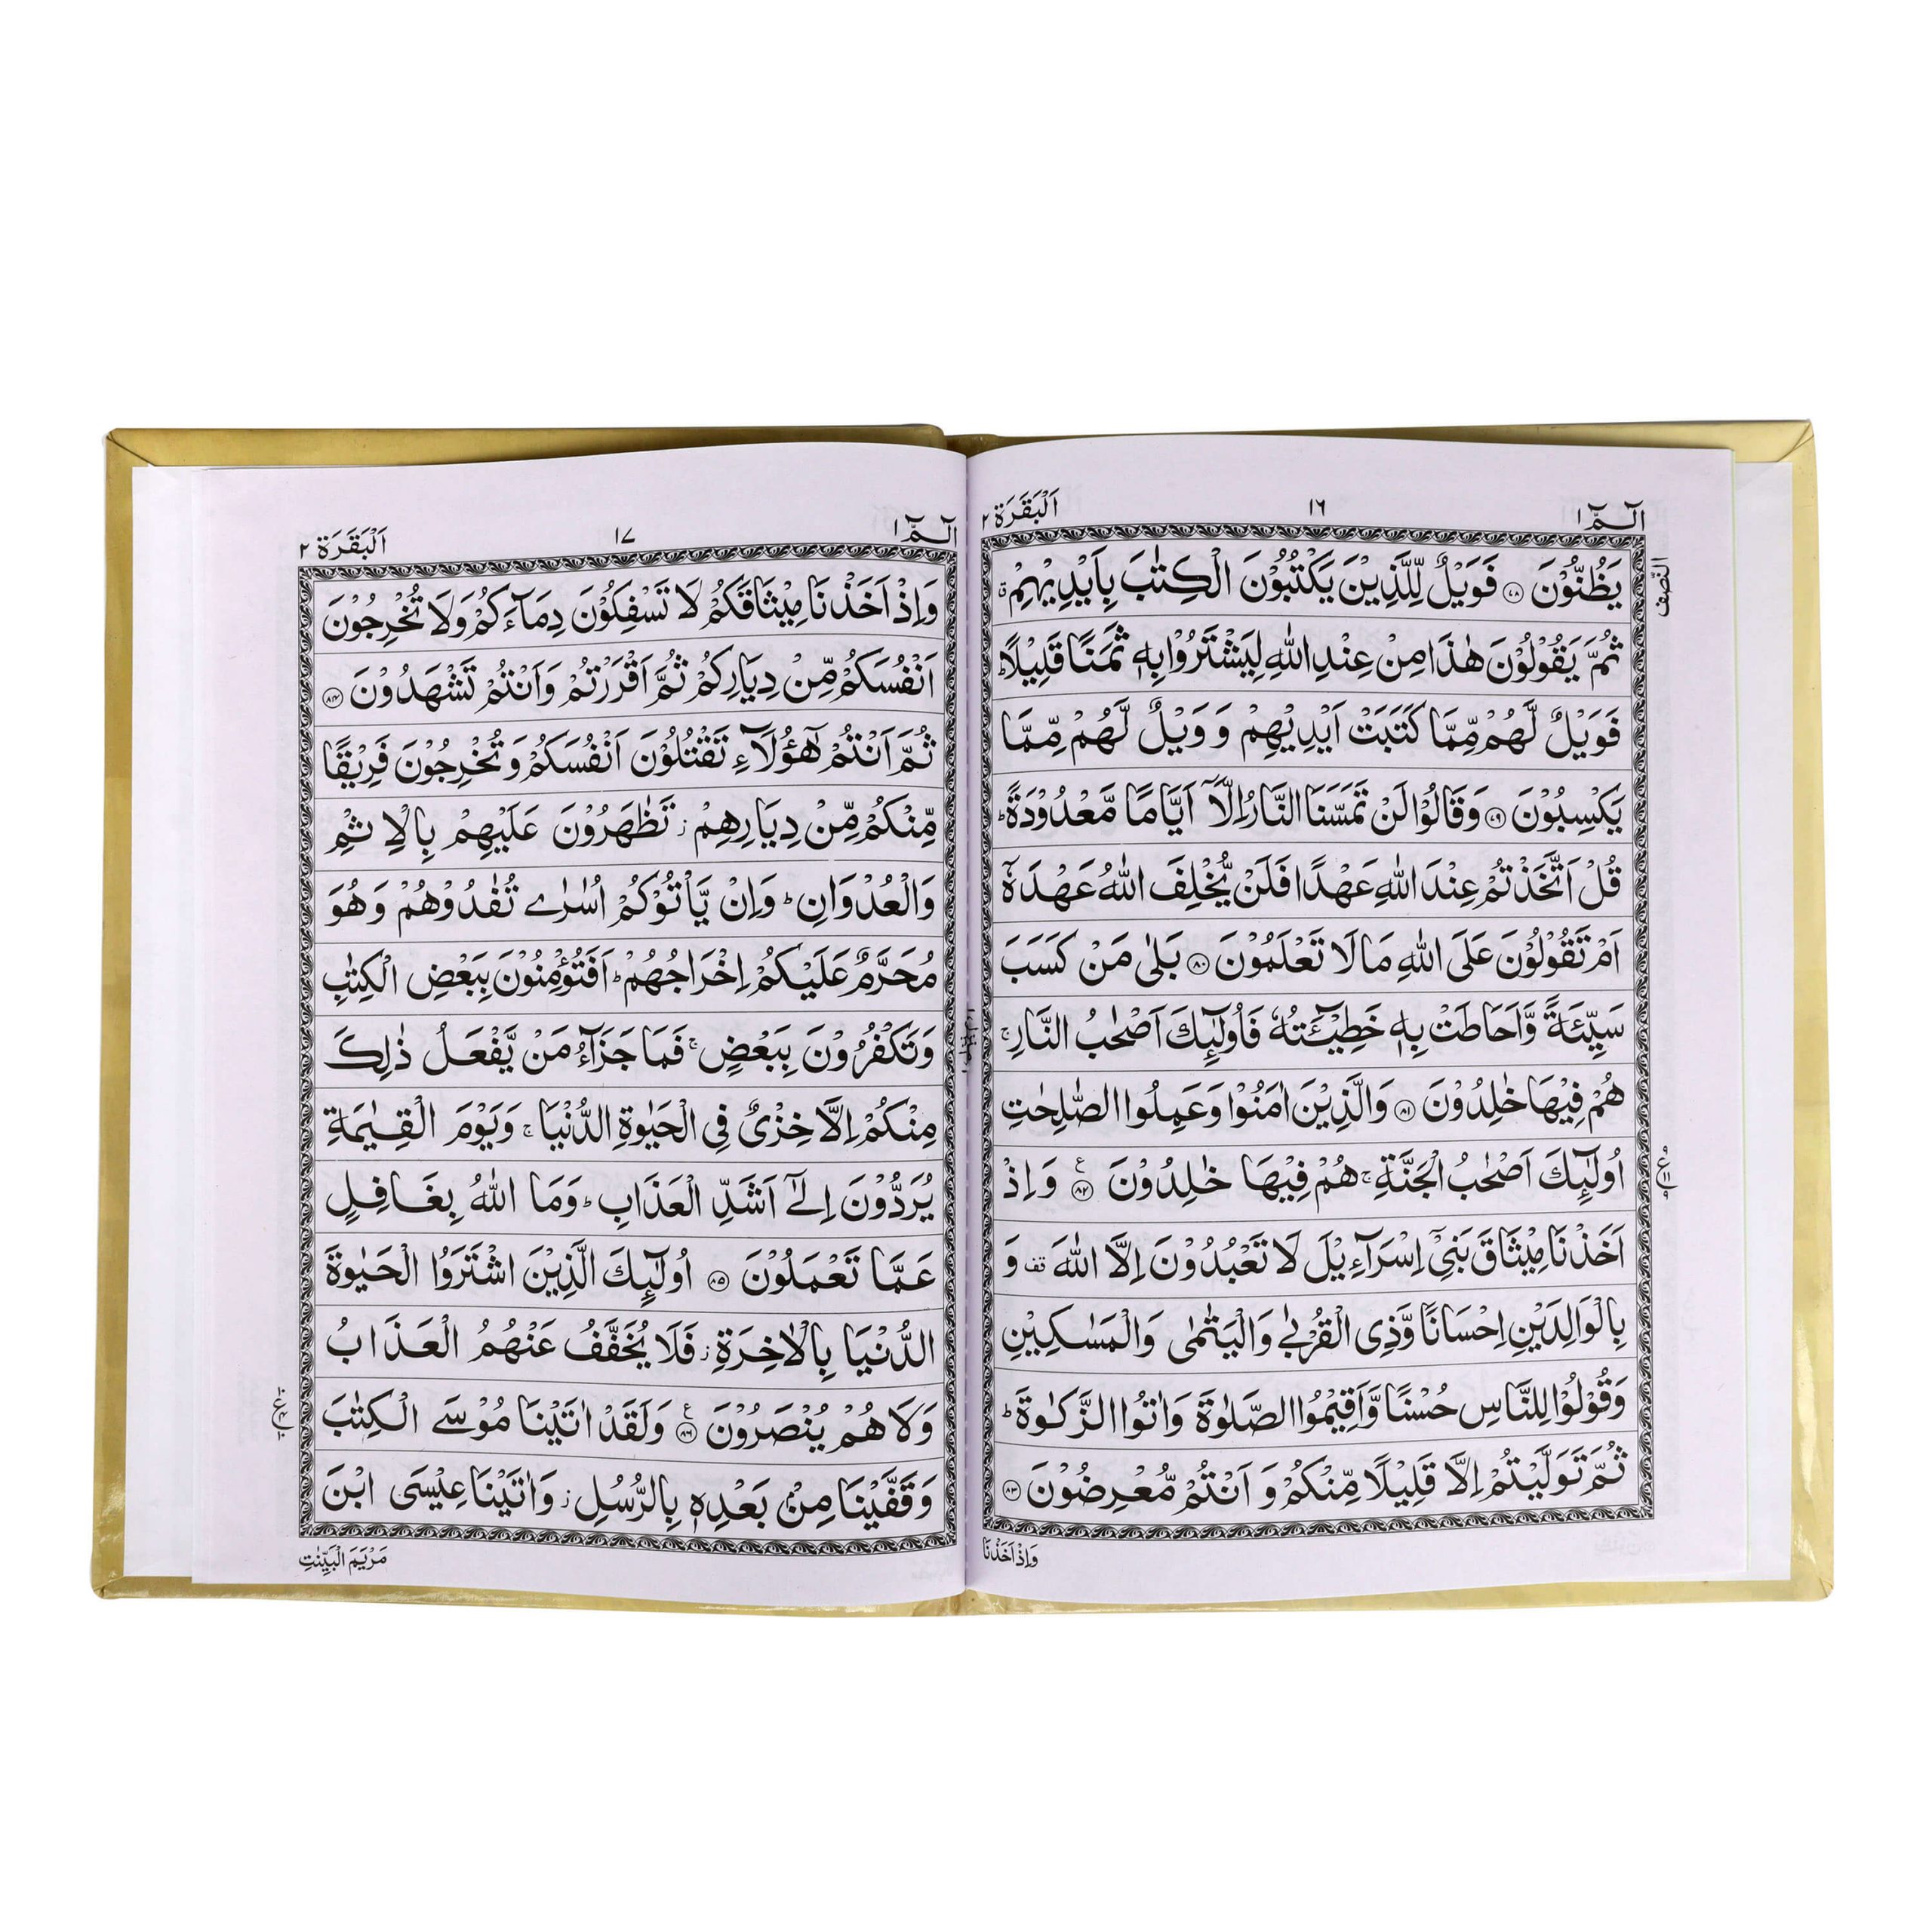 الٓمّٓ ١ ١٦ اَلْبَقَرَة ٢
النّصف
يَظُنُّوْنَ ﴿٧٨﴾ فَوَيْلٌ لِّلَّذِيْنَ يَكْتُبُوْنَ الْكِتٰبَ بِاَيْدِيْهِمْ ۗ
ثُمَّ يَقُوْلُوْنَ هٰذَا مِنْ عِنْدِ اللّٰهِ لِيَشْتَرُوْا بِهٖ ثَمَنًا قَلِيْلًا ؕ
فَوَيْلٌ لَّهُمْ مِّمَّا كَتَبَتْ اَيْدِيْهِمْ وَ وَيْلٌ لَّهُمْ مِّمَّا
يَكْسِبُوْنَ ﴿٧٩﴾ وَقَالُوْا لَنْ تَمَسَّنَا النَّارُ اِلَّاۤ اَيَّامًا مَّعْدُوْدَةً ؕ
قُلْ اَتَّخَذْتُمْ عِنْدَ اللّٰهِ عَهْدًا فَلَنْ يُّخْلِفَ اللّٰهُ عَهْدَهٗۤ
اَمْ تَقُوْلُوْنَ عَلَى اللّٰهِ مَا لَا تَعْلَمُوْنَ ﴿٨٠﴾ بَلٰى مَنْ كَسَبَ
سَيِّئَةً وَّاَحَاطَتْ بِهٖ خَطِيْٓئَتُهٗ فَاُولٰٓئِكَ اَصْحٰبُ النَّارِ ۚ
هُمْ فِيْهَا خٰلِدُوْنَ ﴿٨١﴾ وَالَّذِيْنَ اٰمَنُوْا وَعَمِلُوا الصّٰلِحٰتِ
اُولٰٓئِكَ اَصْحٰبُ الْجَنَّةِ ۚ هُمْ فِيْهَا خٰلِدُوْنَ ﴿٨٢﴾ ع وَاِذْ
اَخَذْنَا مِيْثَاقَ بَنِيْۤ اِسْرَآءِيْلَ لَا تَعْبُدُوْنَ اِلَّا اللّٰهَ قف وَ
بِالْوَالِدَيْنِ اِحْسَانًا وَّذِى الْقُرْبٰى وَالْيَتٰمٰى وَالْمَسٰكِيْنِ
وَقُوْلُوْا لِلنَّاسِ حُسْنًا وَّاَقِيْمُوا الصَّلٰوةَ وَاٰتُوا الزَّكٰوةَ ؕ
ثُمَّ تَوَلَّيْتُمْ اِلَّا قَلِيْلًا مِّنْكُمْ وَ اَنْتُمْ مُّعْرِضُوْنَ ﴿٨٣﴾
وَاِذْ اَخَذْنَا
الٓمّٓ ١ ١٧ اَلْبَقَرَة ٢
وَاِذْ اَخَذْنَا مِيْثَاقَكُمْ لَا تَسْفِكُوْنَ دِمَآءَكُمْ وَلَا تُخْرِجُوْنَ
اَنْفُسَكُمْ مِّنْ دِيَارِكُمْ ثُمَّ اَقْرَرْتُمْ وَاَنْتُمْ تَشْهَدُوْنَ ﴿٨٤﴾
ثُمَّ اَنْتُمْ هٰٓؤُلَآءِ تَقْتُلُوْنَ اَنْفُسَكُمْ وَ تُخْرِجُوْنَ فَرِيْقًا
مِّنْكُمْ مِّنْ دِيَارِهِمْ ز تَظٰهَرُوْنَ عَلَيْهِمْ بِالْاِثْمِ
وَالْعُدْوَانِ ؕ وَاِنْ يَّاْتُوْكُمْ اُسٰرٰى تُفٰدُوْهُمْ وَهُوَ
مُحَرَّمٌ عَلَيْكُمْ اِخْرَاجُهُمْ ؕ اَفَتُؤْمِنُوْنَ بِبَعْضِ الْكِتٰبِ
وَتَكْفُرُوْنَ بِبَعْضٍ ۚ فَمَا جَزَآءُ مَنْ يَّفْعَلُ ذٰلِكَ
مِنْكُمْ اِلَّا خِزْىٌ فِى الْحَيٰوةِ الدُّنْيَا ۚ وَيَوْمَ الْقِيٰمَةِ
يُرَدُّوْنَ اِلٰٓى اَشَدِّ الْعَذَابِ ؕ وَمَا اللّٰهُ بِغَافِلٍ
عَمَّا تَعْمَلُوْنَ ﴿٨٥﴾ اُولٰٓئِكَ الَّذِيْنَ اشْتَرَوُا الْحَيٰوةَ
الدُّنْيَا بِالْاٰخِرَةِ ز فَلَا يُخَفَّفُ عَنْهُمُ الْعَذَابُ
وَلَا هُمْ يُنْصَرُوْنَ ﴿٨٦﴾ ع وَلَقَدْ اٰتَيْنَا مُوْسَى الْكِتٰبَ
وَقَفَّيْنَا مِنْۢ بَعْدِهٖ بِالرُّسُلِ ز وَاٰتَيْنَا عِيْسَى ابْنَ
مَرْيَمَ الْبَيِّنٰتِ